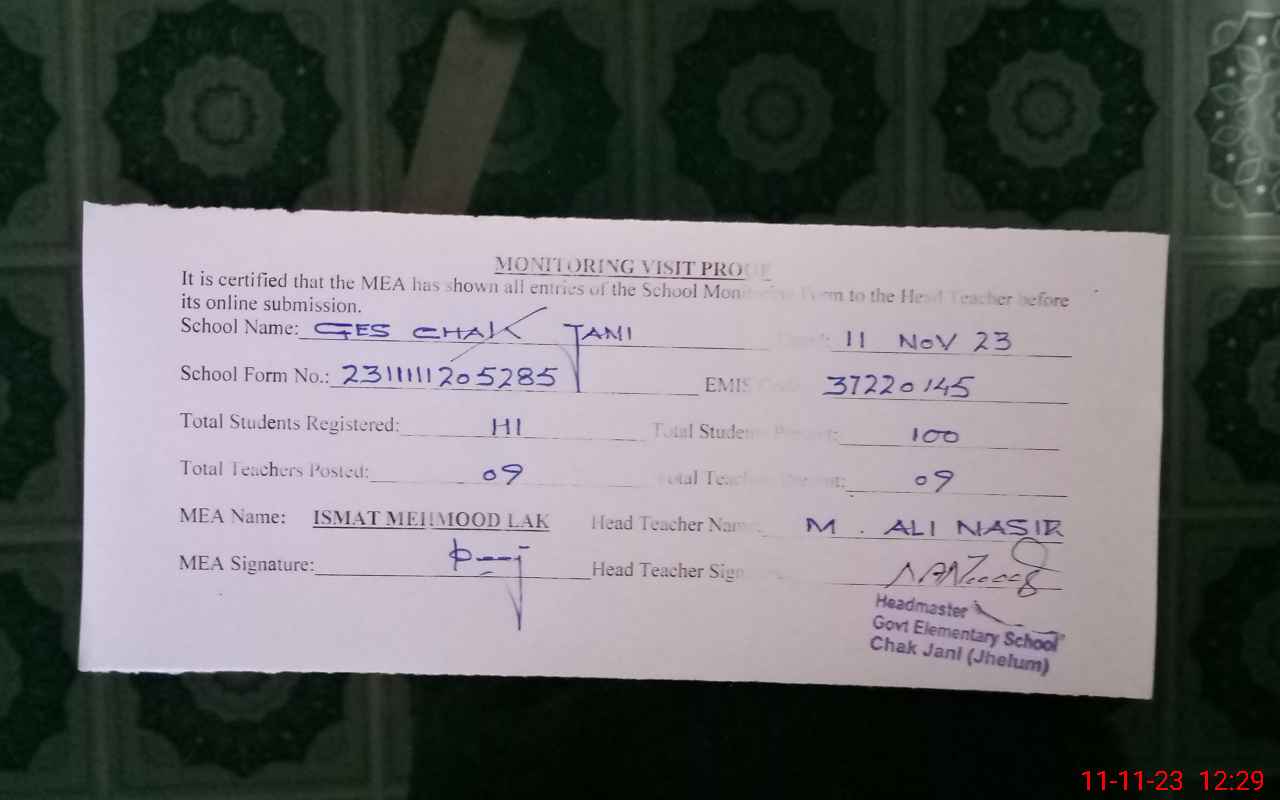 MONITORING VISIT PROOF
It is certified that the MEA has shown all entries of the School Monitoring Form to the Head Teacher before
its online submission.
School Name: GES CHAK JANI 11 NOV 23
School Form No.: 231111205285 EMIS Code: 37220145
Total Students Registered: 111 Total Students Present: 100
Total Teachers Posted: 09 Total Teachers Present: 09
MEA Name: ISMAT MEHMOOD LAK Head Teacher Name: M. ALI NASIR
MEA Signature: Head Teacher Sign
Headmaster
Govt Elementary School
Chak Jani (Jhelum)
11-11-23 12:29